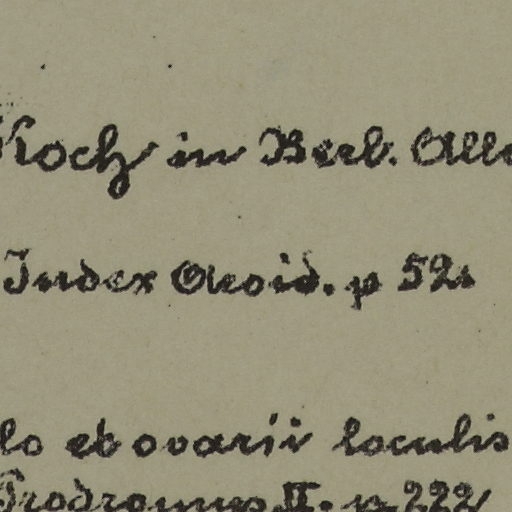 Koch in Berl. All
Index Aroid. p 52.
lo et ovarii loculis
Prodromus II. p. 222